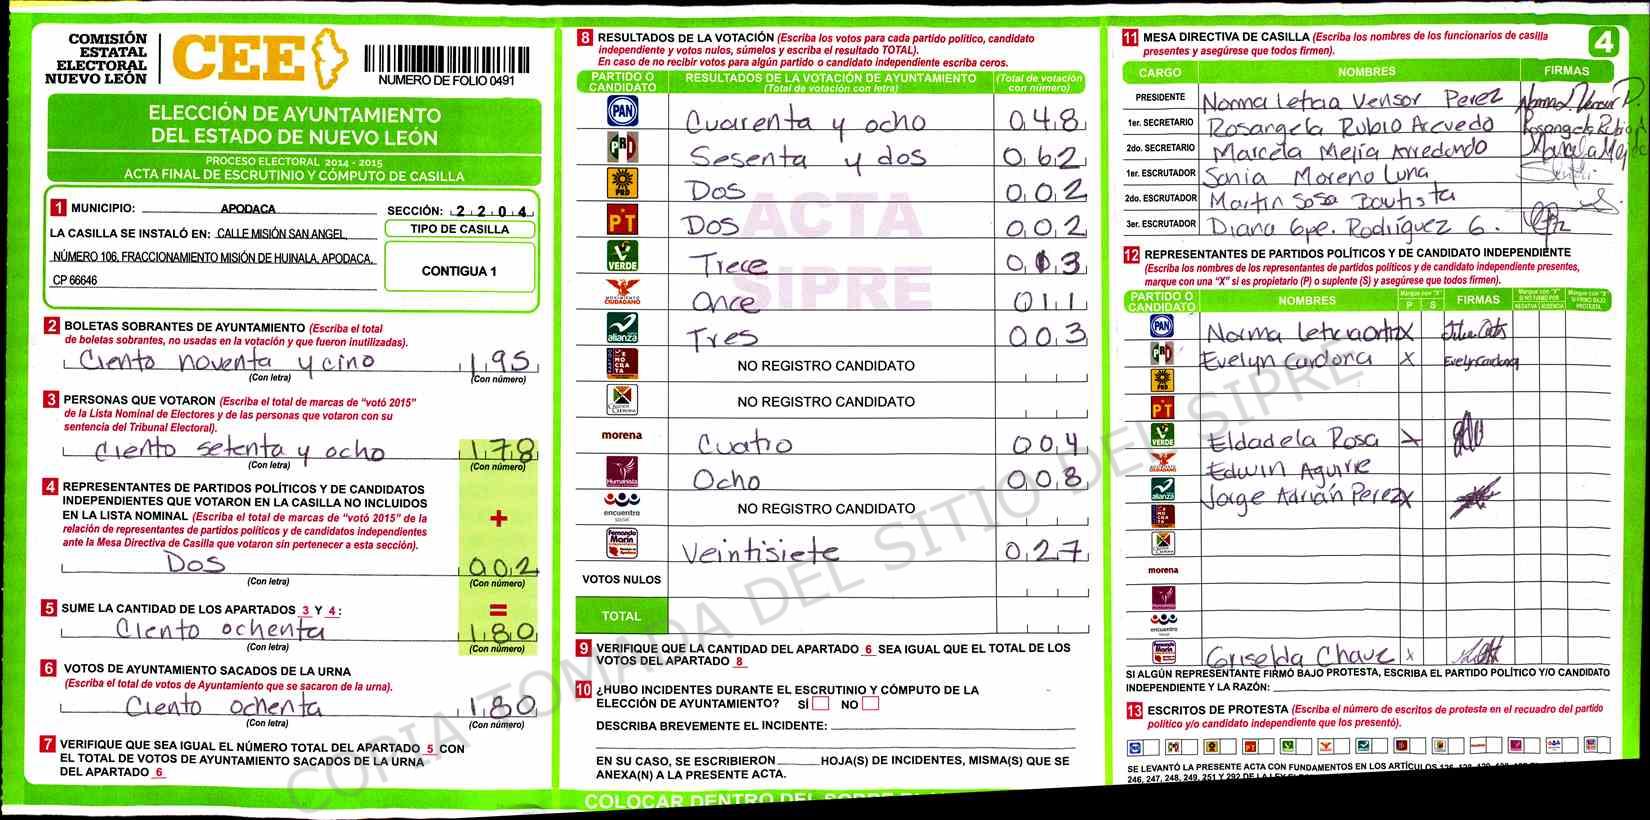 COMISIÓN
ESTATAL
ELECTORAL
NUEVO LEÓN
CEE
NUMERO DE FOLIO 0491
ELECCIÓN DE AYUNTAMIENTO
DEL ESTADO DE NUEVO LEÓN
PROCESO ELECTORAL 2014 - 2015
ACTA FINAL DE ESCRUTINIO Y CÓMPUTO DE CASILLA
1 MUNICIPIO: APODACA SECCIÓN: 2 2 0 4
LA CASILLA SE INSTALÓ EN: CALLE MISIÓN SAN ANGEL,
NÚMERO 106, FRACCIONAMIENTO MISIÓN DE HUINALA, APODACA,
CP 66646
TIPO DE CASILLA
CONTIGUA 1
2 BOLETAS SOBRANTES DE AYUNTAMIENTO (Escriba el total
de boletas sobrantes, no usadas en la votación y que fueron inutilizadas).
Ciento noventa y cino 195
(Con letra) (Con número)
3 PERSONAS QUE VOTARON (Escriba el total de marcas de “votó 2015”
de la Lista Nominal de Electores y de las personas que votaron con su
sentencia del Tribunal Electoral).
Ciento setenta y ocho 178
(Con letra) (Con número)
4 REPRESENTANTES DE PARTIDOS POLÍTICOS Y DE CANDIDATOS
INDEPENDIENTES QUE VOTARON EN LA CASILLA NO INCLUIDOS
EN LA LISTA NOMINAL (Escriba el total de marcas de “votó 2015” de la
relación de representantes de partidos políticos y de candidatos independientes
ante la Mesa Directiva de Casilla que votaron sin pertenecer a esta sección).
+
Dos 002
(Con letra) (Con número)
5 SUME LA CANTIDAD DE LOS APARTADOS 3 Y 4:
=
Ciento ochenta 180
(Con letra) (Con número)
6 VOTOS DE AYUNTAMIENTO SACADOS DE LA URNA
(Escriba el total de votos de Ayuntamiento que se sacaron de la urna).
Ciento ochenta 180
(Con letra) (Con número)
7 VERIFIQUE QUE SEA IGUAL EL NÚMERO TOTAL DEL APARTADO 5 CON
EL TOTAL DE VOTOS DE AYUNTAMIENTO SACADOS DE LA URNA
DEL APARTADO 6
8 RESULTADOS DE LA VOTACIÓN (Escriba los votos para cada partido político, candidato
independiente y votos nulos, súmelos y escriba el resultado TOTAL).
En caso de no recibir votos para algún partido o candidato independiente escriba ceros.
PARTIDO O CANDIDATO RESULTADOS DE LA VOTACIÓN DE AYUNTAMIENTO (Total de votación con letra) (Total de votación con número)
PAN Cuarenta y ocho 048
PRD Sesenta y dos 062
PRD Dos 002
PT Dos 002
VERDE Trece 013
MOVIMIENTO CIUDADANO Once 011
alianza Tres 003
NO REGISTRO CANDIDATO
NO REGISTRO CANDIDATO
morena Cuatro 004
Humanista Ocho 008
encuentro social NO REGISTRO CANDIDATO
Fernando Marín Veintisiete 027
VOTOS NULOS
TOTAL
ACTA
SIPRE
9 VERIFIQUE QUE LA CANTIDAD DEL APARTADO 6 SEA IGUAL QUE EL TOTAL DE LOS
VOTOS DEL APARTADO 8
10 ¿HUBO INCIDENTES DURANTE EL ESCRUTINIO Y CÓMPUTO DE LA
ELECCIÓN DE AYUNTAMIENTO? SÍ NO
DESCRIBA BREVEMENTE EL INCIDENTE:
EN SU CASO, SE ESCRIBIERON HOJA(S) DE INCIDENTES, MISMA(S) QUE SE
ANEXA(N) A LA PRESENTE ACTA.
COLOCAR DENTRO DEL
COPIA TOMADA DEL SITIO DEL SIPRE
11 MESA DIRECTIVA DE CASILLA (Escriba los nombres de los funcionarios de casilla
presentes y asegúrese que todos firmen).
4
CARGO NOMBRES FIRMAS
PRESIDENTE Norma Leticia Vensor Perez
1er. SECRETARIO Rosangela Rubio Acevedo
2do. SECRETARIO Marcela Mejia Arredondo
1er. ESCRUTADOR Sonia Moreno Luna
2do. ESCRUTADOR Martin Sosa Bautista
3er. ESCRUTADOR Diana Gpe. Rodríguez G.
12 REPRESENTANTES DE PARTIDOS POLÍTICOS Y DE CANDIDATO INDEPENDIENTE
(Escriba los nombres de los representantes de partidos políticos y de candidato independiente presentes,
marque con una “X” si es propietario (P) o suplente (S) y asegúrese que todos firmen).
PARTIDO O CANDIDATO NOMBRES P S FIRMAS
PAN Norma Leticia Ortiz X
Evelyn Cardona X Evelyn Cardona
PRD
PT
VERDE Eldadela Rosa X
Edwin Aguirre
alianza Jorge Adrián Perez X
morena
Humanista
encuentro
Griselda Chave X
SI ALGÚN REPRESENTANTE FIRMÓ BAJO PROTESTA, ESCRIBA EL PARTIDO POLÍTICO Y/O CANDIDATO
INDEPENDIENTE Y LA RAZÓN:
13 ESCRITOS DE PROTESTA (Escriba el número de escritos de protesta en el recuadro del partido
político y/o candidato independiente que los presentó).
SE LEVANTÓ LA PRESENTE ACTA CON FUNDAMENTOS EN LOS ARTÍCULOS
246, 247, 248, 249, 251 Y 292 DE LA